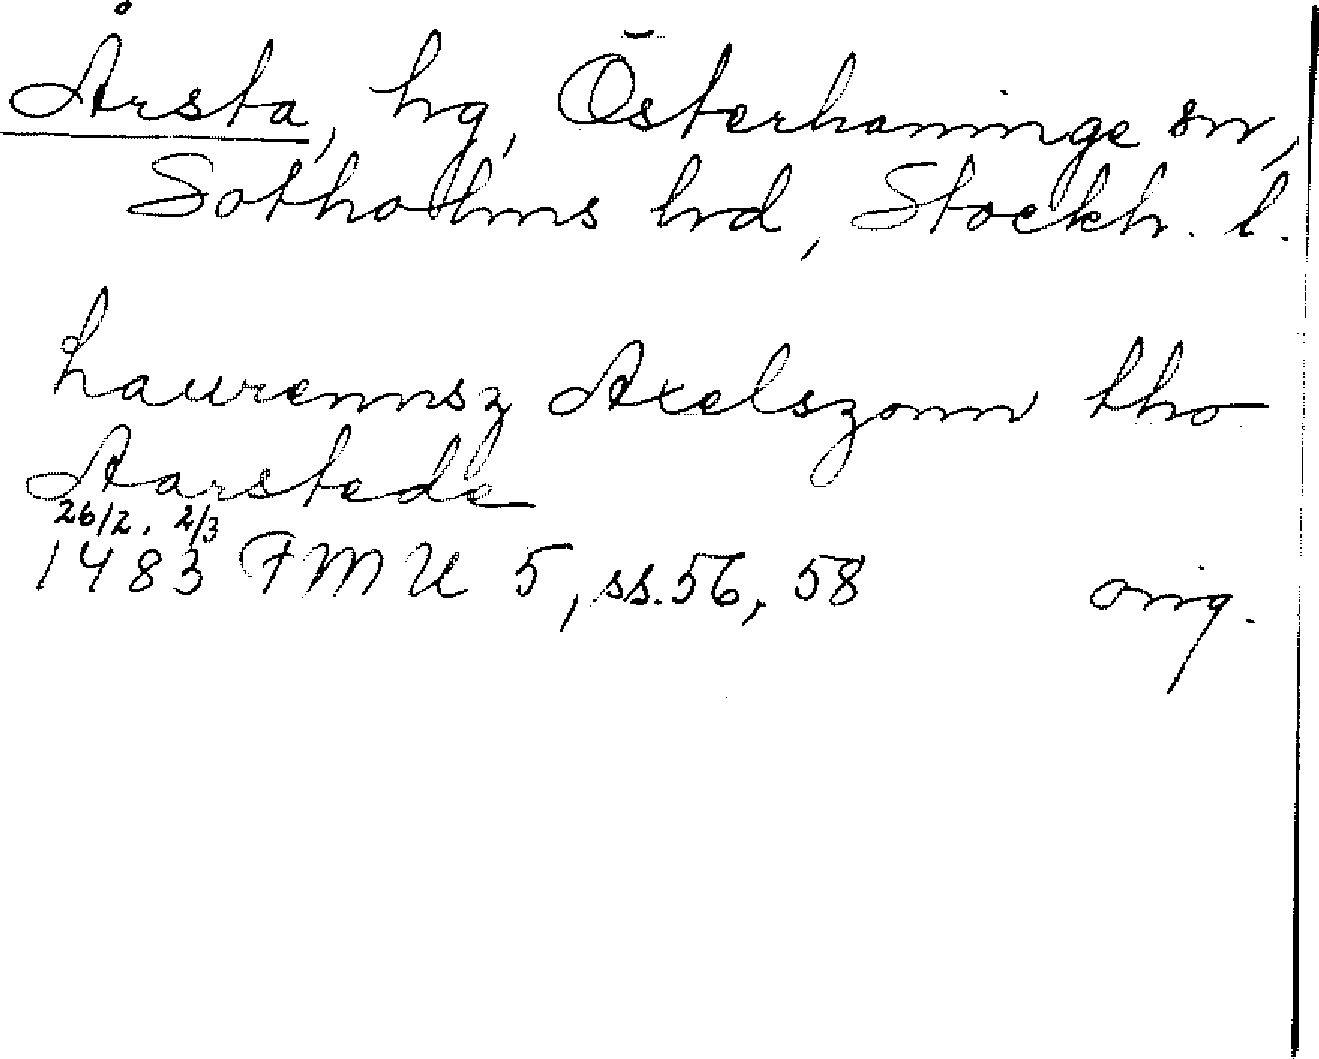 Årsta, hg, Österhaninge sn,
Sotholms hrd, Stockh. l.
Laurennsz Axelszonn tho
Aarstede
26/2. 2/3
1483 FMU 5, ss. 56, 58 orig.